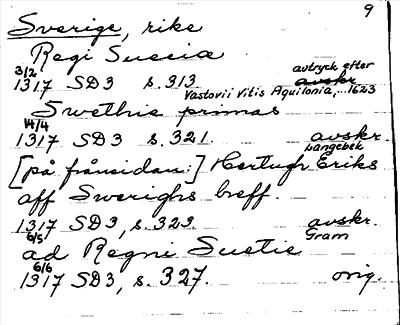 9
Sverige, rike
Regi Sueciæ
3/2
1317 SD3 s.313. avtryck efter avskr.
Vastovii Vitis Aquilonia, 1623
Swethie primas
14/4
1317 SD3 s.321. avskr.
Langebek
[på frånsidan:] Hertugh Eriks
aff Swerighs breff.
1317 SD3, s.323. avskr.
6/5 Gram
ad Regni Suetie
6/6
1317 SD3, s.327. orig.